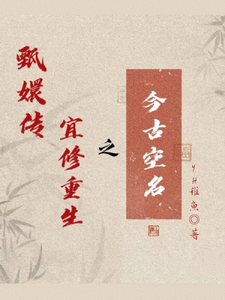 甄嬛传
之
宜修重生
今古空名
YH稚鱼◎著